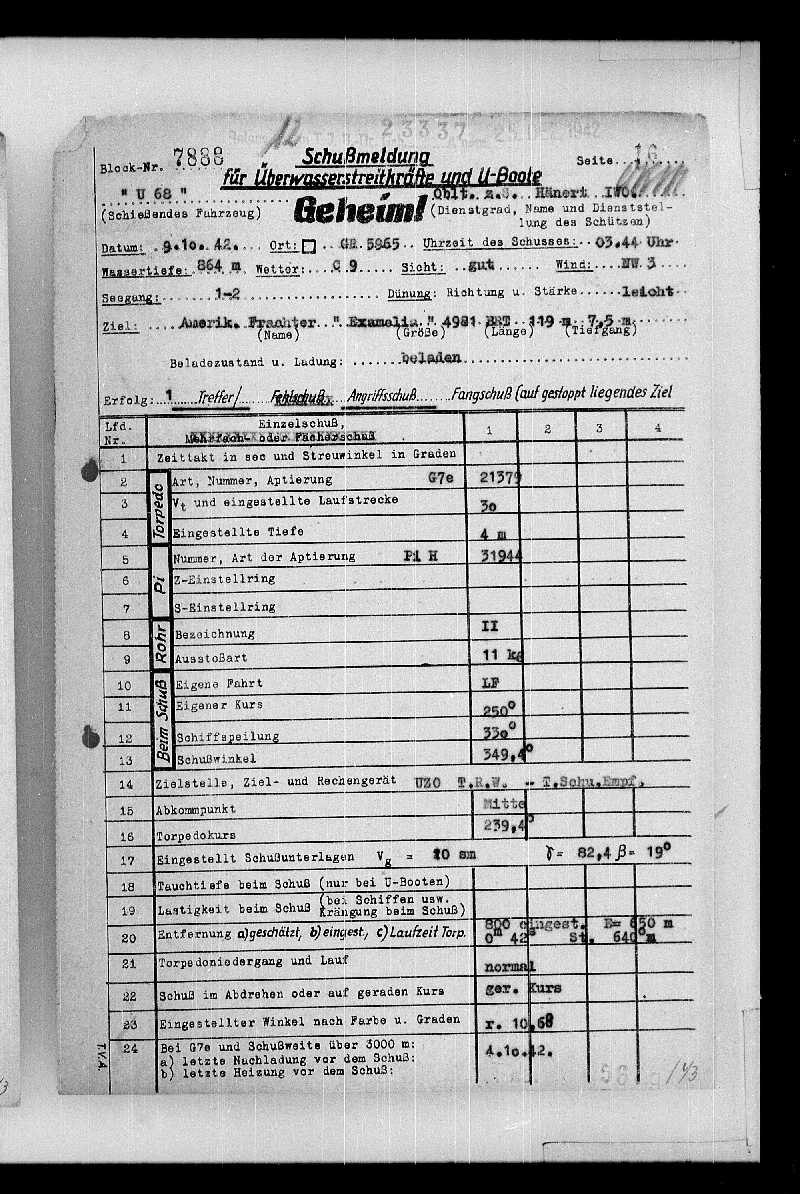 12
23337
1942
Block-Nr. 7888 Schußmeldung Seite 16
für Überwasserstreitkräfte und U-Boote
" U 68 " Oblt. z.S. Hänert IWO.
(Schießendes Fahrzeug) Geheim! (Dienstgrad, Name und Dienststel-
lung des Schützen)
Datum: 9.10. 42. Ort: GR 5865 Uhrzeit des Schusses: 03.44 Uhr
Wassertiefe: 864 m Wetter: C 9 Sicht: gut Wind: NW 3
Seegang: 1-2 Dünung: Richtung u. Stärke leicht
Ziel: Amerik. Frachter " Examelia " 4981 BRT 119 m 7,5 m
(Name) (Größe) (Länge) (Tiefgang)
Beladezustand u. Ladung: beladen
Erfolg: 1 Treffer/ Fehlschuß Angriffsschuß Fangschuß (auf gestoppt liegendes Ziel
Lfd. Nr. Einzelschuß, 1 2 3 4
Mehrfach- oder Fächerschuß
1 Zeittakt in sec und Streuwinkel in Graden
Torpedo
2 Art, Nummer, Aptierung G7e 21379
3 Vt und eingestellte Laufstrecke 30
4 Eingestellte Tiefe 4 m
Pi
5 Nummer, Art der Aptierung Pi H 31944
6 Z-Einstellring
7 S-Einstellring
Rohr
8 Bezeichnung II
9 Ausstoßart 11 kg
Beim Schuß
10 Eigene Fahrt LF
11 Eigener Kurs 250°
12 Schiffspeilung 330°
13 Schußwinkel 349,4°
14 Zielstelle, Ziel- und Rechengerät UZO T.R.W. -- T.Schu.Empf.
15 Abkommpunkt Mitte
16 Torpedokurs 239,4°
17 Eingestellt Schußunterlagen Vg = 10 sm γ= 82,4 β= 19°
18 Tauchtiefe beim Schuß (nur bei U-Booten)
19 Lastigkeit beim Schuß (bei Schiffen usw. Krängung beim Schuß)
20 Entfernung a) geschätzt, b) eingest., c) Laufzeit Torp. 800 eingest. E= 650 m
0m 42s St. 640 m
21 Torpedoniedergang und Lauf normal
22 Schuß im Abdrehen oder auf geraden Kurs ger. Kurs
23 Eingestellter Winkel nach Farbe u. Graden r. 10,68
24 Bei G7e und Schußweite über 3000 m: 4.10.42.
a) letzte Nachladung vor dem Schuß:
b) letzte Heizung vor dem Schuß:
T.V.A.
143